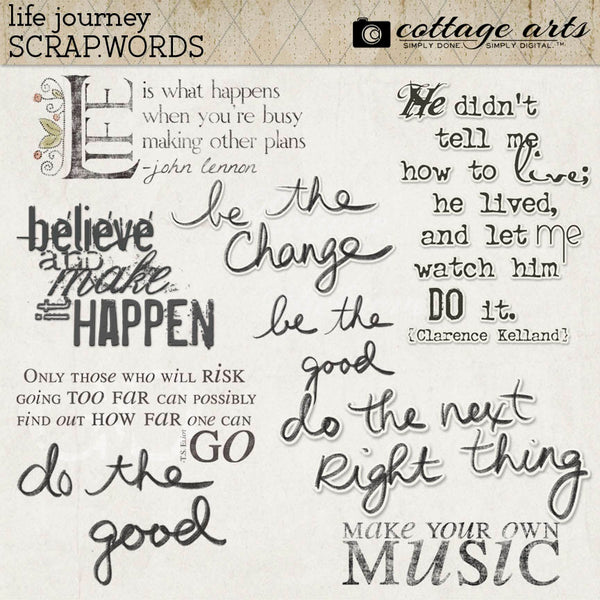 life journey
SCRAP.WORDS
cottage arts
SIMPLY DONE. SIMPLY DIGITAL.™
LIFE is what happens
when you're busy
making other plans
-john lennon
He didn't
tell me
how to live;
he lived,
and let me
watch him
DO it.
{Clarence Kelland}
believe
and
make
it HAPPEN
be the
Change
be the
good
ONLY THOSE WHO WILL RiSK
GOING TOO FAR CAN POSSIBLY
FIND OUT HOW FAR ONE CAN
GO
-T.S. ELIOT
do the next
Right thing
do the
good
MAKE YOUR OWN
MUSiC